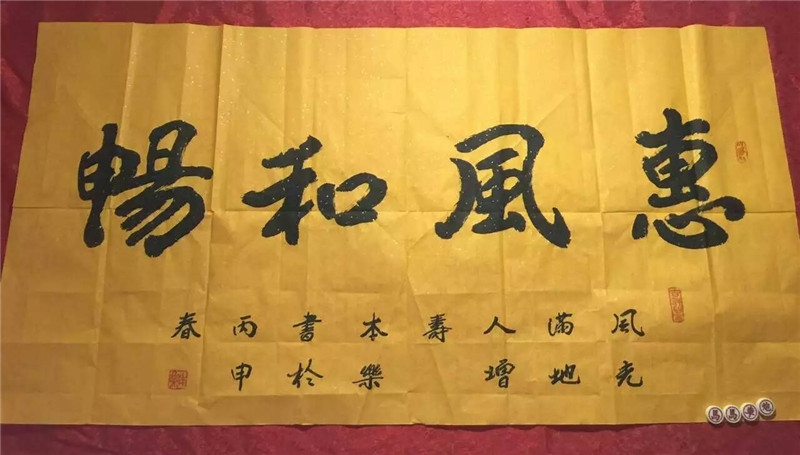 惠風和暢
風光
滿地
人增
壽
本樂
書於
丙申
春
馬馬車炮